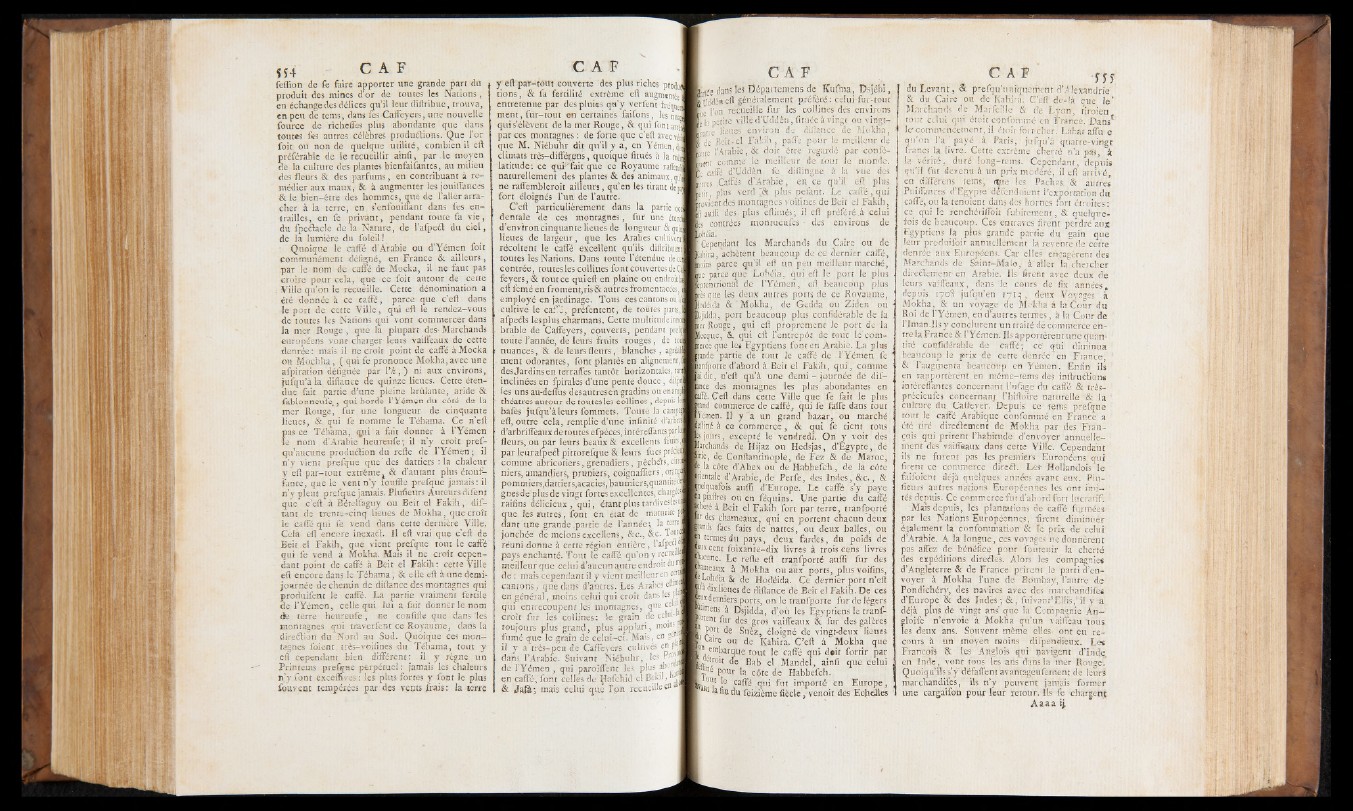 554 CAF CAF
ſeſſion de ſe faire apporter une grande part du
produit des mines d'or de toutes les Nations,
en échange des délices qu'il leur diſtribue, trouva,
en peu de tems, dans ſes Caffeyers, une nouvelle
ſource de richeſſes plus abondante que dans
toutes ſes autres célèbres productions. Que l'or
ſoit ou non de quelque utilité, combien il eſt
préférable de le recueillir ainſi, par le moyen
de la culture des plantes bienfaiſantes, au milieu
des fleurs & des parfums, en contribuant à re-
médier aux maux, & à augmenter les jouiſſances
& le bien-être des hommes, que de l'aller arra-
cher à la terre, en s'enfouiſſant dans ſes en-
trailles, en ſe privant, pendant toute ſa vie,
du ſpectacle de la Nature, de l'aſpect du ciel,
de la lumière du ſoleil!
Quoique le caffé d'Arabie ou d'Yémen ſoit
communément déſigné, en France & ailleurs,
par le nom de caffé de Mocka, il ne faut pas
croire pour cela, que ce ſoit autour de cette
Ville qu'on le recueille. Cette dénomination a
été donnée à ce caffé, parce que c'eſt dans
le port de cette Ville, qui eſt le rendez-vous
de toutes les Nations qui vont commercer dans
la mer Rouge, que la plupart des Marchands
européens vont charger leurs vaiſſeaux de cette
denrée: mais il ne croît point de caffé à Mocka
ou Mochha, (qui ſe prononce Mokha, avec une
aſpiration déſignée par l'h,) ni aux environs,
juſqu'à la diſtance de quinze lieues. Cette éten-
due fait partie d'une pleine brûlante, aride &
ſablonneuſe, qui borde l'Yémen du côté de la
mer Rouge, ſur une longueur de cinquante
lieues, & qui ſe nomme le Téhama. Ce n'eſt
pas ce Téhama, qui a fait donner à l'Yémen
le nom d'Arabie heureuſe; il n'y croît preſ-
qu'aucune production du reſte de l'Yémen; il
n'y vient preſque que des dattiers: la chaleur
y eſt par-tout extrême, & d'autant plus étouf-
fante, que le vent n'y ſouffle preſque jamais: il
n'y pleut preſque jamais. Pluſieurs Auteurs diſent
que c'eſt à Bételfaguy ou Beit el Fakih, diſ-
tant de trente-cinq lieues de Mokha, que croît
le caffé qui ſe vend dans cette dernière Ville.
Cela eſt encore inexact. Il eſt vrai que c'eſt de
Beit el Fakih, que vient preſque tout le caffé
qui ſe vend à Mokha. Mais il ne croît cepen-
dant point de caffé à Beit el Fakih: cette Ville
eſt encore dans le Téhama, & elle eſt à une demi-
journée de chemin de diſtance des montagnes qui
produiſent le caffé. La partie vraiment fertile
de l'Yémen, celle qui lui a fait donner le nom
de terre heureuſe, ne conſiſte que dans les
montagnes qui traverſent ce Royaume, dans la
direction du Nord au Sud. Quoique ces mon-
tagnes ſoient très-voiſines du Téhama, tout y
eſt cependant bien différent: il y règne un
Printems preſque perpétuel: jamais les chaleurs
n'y ſont exceſſives: les plus fortes y ſont le plus
ſouvent tempérées par des vents frais: la terre
y eſt par-tout couverte des plus riches
tions, & ſa fertilité extrême eſt augmentée
entretenue par des pluies qu'y verſent
ment, ſur-tout en certaines ſaiſons, les
qui s'élèvent de la mer Rouge, & qui ſont
par ces montagnes: de ſorte que c'eſt avec
que M. Niébuhr dit qu'il y a, en Yémen,
climats très-différens, quoique ſitués à la
latitude: ce qui fait que ce Royaume
naturellement des plantes & des animaux,
ne raſſembleroit ailleurs, qu'en les tirant de
fort éloignés l'un de l'autre.
C'eſt particulièrement dans la partie
dentale de ces montagnes, ſur une
d'environ cinquante lieues de longueur &
lieues de largeur, que les Arabes cultivent
récoltent le caffé excellent qu'ils diſtribuent
toutes les Nations. Dans toute l'étendue de
contrée, toutes les collines ſont couvertes de
feyers, & tout ce qui eſt en plaine ou
eſt ſemé en froment, ris & autres fromentacées,
employé en jardinage. Tous ces cantons
cultive le caffé, préſentent, de toutes parts,
aſpects les plus charmans. Cette multitude
brable de Caffeyers, couverts, pendant
toute l'année, de leurs fruits rouges, de
nuances, & de leurs fleurs, blanches,
ment odorantes, ſont plantés en alignement,
des Jardins en terraſſes tantôt horizontales,
inclinées en ſpirales d'une pente douce,
les uns au-deſſus des autres en gradins ou
théâtres autour de toutes les collines, depuis
baſes juſqu'à leurs ſommets. Toute la
eſt, outre cela, remplie d'une infinité d'arbres
d'arbriſſeaux de toutes eſpèces, intéreſſans par
fleurs, ou par leurs beaux & excellens fruits,
par leur aſpect pittoreſque & leurs ſucs
comme abricotiers, grenadiers, pêchers,
niers, amandiers, pruniers, coignaſſiers,
pommiers, dattiers, acacies, baumiers, quantité
gnes de plus de vingt ſortes excellentes, chargées
raiſins délicieux, qui, étant plus tardives
que les autres, ſont en état de maturité
dant une grande partie de l'année; la terre
jonchée de melons excellens, &c., &c. Tout
réuni donne à cette région entière, l'aſpect
pays enchanté. Tout le caffé qu'on y recueille
meilleur que celui d'aucun autre endroit du
de: mais cependant il y vient meilleur en
cantons, que dans d'autres. Les Arabes
en général, moins celui qui croît dans les
qui entrecoupent les montagnes, que celui
croît ſur les collines: le grain de celui
toujours plus grand, plus applati, moins
fumé que le grain de celui-ci. Mais, en
il y a très-peu de Caffeyers cultivés en
dans l'Arabie. Suivant Niébuhr, les
de l'Yémen, qui paroiſſent les plus
en caffé, ſont celles de Haſchid el Bekil,
& Jafa; mais celui que l'on recueille
CAF CAF 555
dans les Départemens de Kuſma, Dsjébi,
& Uddén eſt généralement préféré: celui ſur-tout
que l'on recueille ſur les collines des environs
de la petite ville d'Uddén, ſituée à vingt ou vingt-
lieues environ de diſtance de Mokha,
& de Beit-el Fakih, paſſe pour le meilleur de
toute l'Arabie, & doit être regardé par conſé-
quent comme le meilleur de tout le monde.
Ce caffé d'Uddén ſe diſtingue à la vue des
autres Caffés d'Arabie, en ce qu'il eſt plus
plus verd & plus peſant. Le caffé, qui
provient des montagnes voiſines de Beit el Fakih,
eſt auſſi des plus eſtimés; il eſt préféré à celui
des contrées montueuſes des environs de
Lohéia.
Cependant les Marchands du Caire ou de
Kahira, achètent beaucoup de ce dernier caffé,
moins parce qu'il eſt un peu meilleur marché,
que parce que Lohéia, qui eſt le port le plus
ſeptentrional de l'Yémen, eſt beaucoup plus
près que les deux autres ports de ce Royaume,
Hodéida & Mokha, de Gedda ou Ziden ou
Dsjidda, port beaucoup plus conſidérable de la
mer Rouge, qui eſt proprement le port de la
Mecque, & qui eſt l'entrepôt de tout le com-
merce que les Egyptiens font en Arabie. La plus
grande partie de tout le caffé de l'Yémen ſe
tranſporte d'abord à Beit el Fakih, qui, comme
j'ai dit, n'eſt qu'à une demi-journée de diſ-
tance des montagnes les plus abondantes en
caffé. C'eſt dans cette Ville que ſe fait le plus
grand commerce de caffé, qui ſe faſſe dans tout
l'Yémen. Il y a un grand bazar, ou marché
deſtiné à ce commerce, & qui ſe tient tous
les jours, excepté le vendredi. On y voit des
Marchands de Hijaz ou Hedsjas, d'Egypte, de
Syrie, de Conſtantinople, de Fez & de Maroc,
de la côte d'Abex ou de Habbeſch, de la côte
orientale d'Arabie, de Perſe, des Indes, &c., &
quelquefois auſſi d'Europe. Le caffé s'y paye
en piaſtres ou en féquins. Une partie du caffé
acheté à Beit el Fakih ſort par terre, tranſporté
ſur des chameaux, qui en portent chacun deux
grands ſacs faits de nattes, ou deux balles, ou
en termes du pays, deux fardes, du poids de
deux cent ſoixante-dix livres à trois cens livres
chacune. Le reſte eſt tranſporté auſſi ſur des
chameaux à Mokha ou aux ports, plus voiſins,
de Lohéia & de Hodéida. Ce dernier port n'eſt
qu'à dix lieues de diſtance de Beit el Fakih. De ces
deux derniers ports, on le tranſporte ſur de légers
bâtimens à Dsjidda, d'où les Egyptiens le tranſ-
portent ſur des gros vaiſſeaux & ſur des galères
au port de Suéz, éloigné de vingt-deux lieues
du Caire ou de Kahira. C'eſt à Mokha que
l'on embarque tout le caffé qui doit ſortir par
le détroit de Bab el Mandel, ainſi que celui
deſtiné pour la côte de Habbeſch.
Tout le caffé qui fut importé en Europe,
avant la fin du ſeizième ſiècle, venoit des Echelles
du Levant, & preſqu'uniquement d'Alexandrie
& du Caire ou de Kahira. C'eſt de-là que le
Marchands de Marſeille & de Lyon, tiroient
tout celui qui étoit conſommé en France. Dans
le commencement, il étoit fort cher. Labat aſſure
qu'on l'a payé à Paris, juſqu'à quatre-vingt
francs la livre. Cette extrême cherté n'a pas, à
la vérité, duré long-tems. Cependant, depuis
qu'il fut devenu à un prix modéré, il eſt arrivé,
en différens tems, que les Pachas & autres
Puiſſances d'Egypte défendoient l'exportation du
caffé, ou la tenoient dans des bornes fort étroites:
ce qui le renchériſſoit ſubitement, & quelque-
fois de beaucoup. Ces entraves firent perdre aux
Egyptiens la plus grande partie du gain que
leur produiſoit annuellement la revente de cette
denrée aux Européens. Car elles engagèrent des
Marchands de Saint-Malo, à aller la chercher
directement en Arabie. Ils firent avec deux de
leurs vaiſſeaux, dans le cours de ſix années,
depuis 1708 juſqu'en 1714, deux Voyages à
Mokha, & un voyage de Mokha à la Cour du
Roi de l'Yémen, en d'autres termes, à la Cour de
l'Iman. Ils y conclurent un traité de commerce en-
tre la France & l'Yémen. Ils apportèrent une quan-
tité conſidérable de caffé; ce qui diminua
beaucoup le prix de cette denrée en France,
& l'augmenta beaucoup en Yémen. Enfin ils
en rapportèrent en même-tems des inſtructions
intéreſſantes concernant l'uſage du caffé & très-
précieuſes concernant l'hiſtoire naturelle & la
culture du Caffeyer. Depuis ce tems preſque
tout le caffé Arabique conſommé en France a
été tiré directement de Mokha par des Fran-
çois qui prirent l'habitude d'envoyer annuelle-
ment des vaiſſeaux dans cette Ville. Cependant
ils ne furent pas les premiers Européens qui
firent ce commerce direct. Les Hollandois le
faiſoient déjà quelques années avant eux. Plu-
ſieurs autres nations Européennes les ont imi-
tés depuis. Ce commerce fut d'abord fort lucratif.
Mais depuis, les plantations de caffé formées
par les Nations Européennes, firent diminuer
également la conſommation & le prix de celui
d'Arabie. A la longue, ces voyages ne donnèrent
pas aſſez de bénéfice pour ſoutenir la cherté
des expéditions directes. Alors les compagnies
d'Angleterre & de France prirent le parti d'en-
voyer à Mokha l'une de Bombay, l'autre de
Pondichéry, des navires avec des marchandiſes
d'Europe & des Indes; &, ſuivant Ellis, il y a
déjà plus de vingt ans que la Compagnie An-
gloiſe n'envoie à Mokha qu'un vaiſſeau tous
les deux ans. Souvent même elles ont eu re-
cours à un moyen moins diſpendieux. Les
François & les Anglois qui navigent d'Inde
en Inde, vont tous les ans dans la mer Rouge.
Quoiqu'ils s'y défaſſent avantageuſement de leurs
marchandiſes, ils n'y peuvent jamais former
une cargaiſon pour leur retour. Ils ſe chargent
Aaaa ij